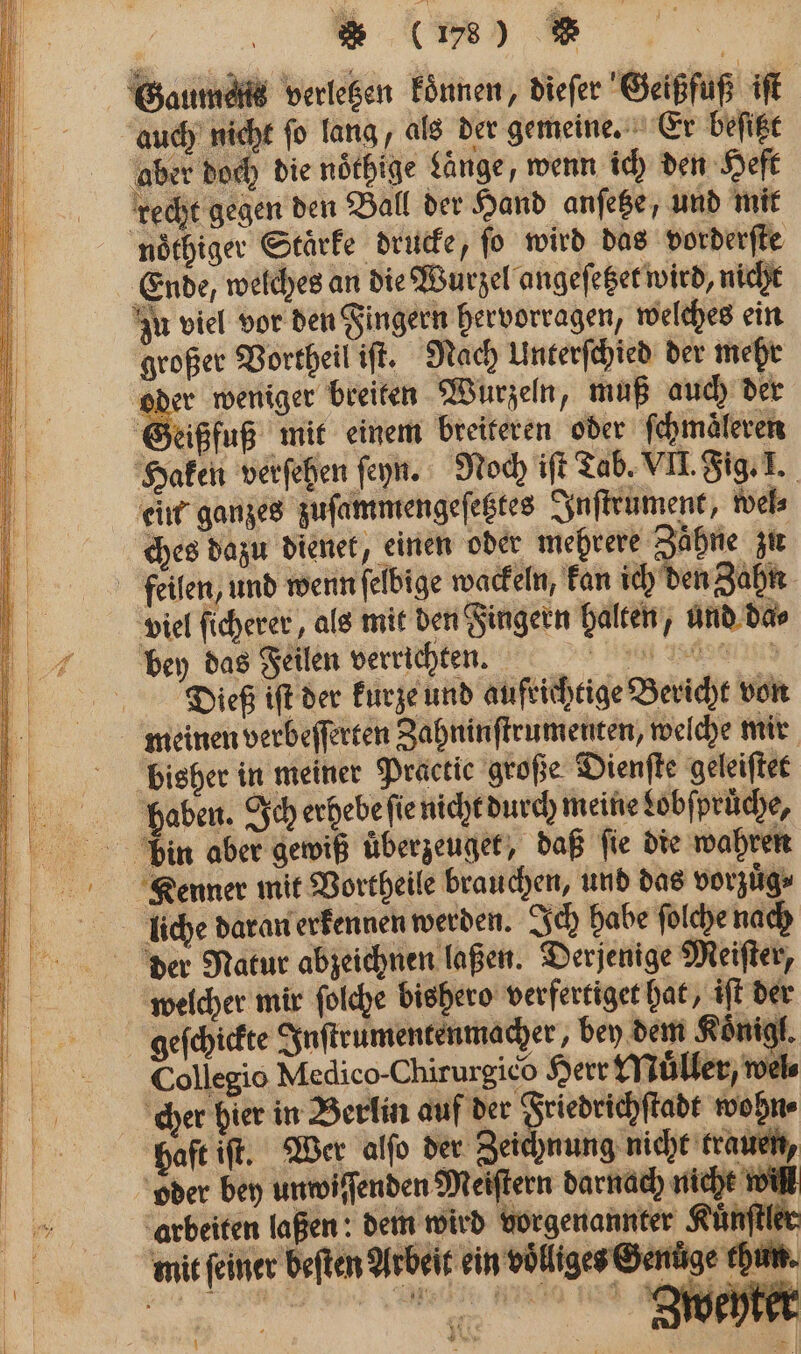 ( 178 )
Gaumens verletzen können, dieser Geißfuß ist
auch nicht so lang, als der gemeine. Er besitzt
aber doch die nöthige Länge, wenn ich den Heft
recht gegen den Ball der Hand ansetze, und mit
nöthiger Stärke drucke, so wird das vorderste
Ende, welches an die Wurzel angesetzet wird, nicht
zu viel vor den Fingern hervorragen, welches ein
großer Vortheil ist. Nach Unterschied der mehr
oder weniger breiten Wurzeln, muß auch der
Geißfuß mit einem breiteren oder schmäleren
Haken versehen seyn. Noch ist Tab. VII. Fig. I.
ein ganzes zusammengesetztes Instrument, wel-
ches dazu dienet, einen oder mehrere Zähne zu
feilen, und wenn selbige wackeln, kan ich den Zahn
viel sicherer, als mit den Fingern halten, und da-
bey das Feilen verrichten.
Dieß ist der kurze und aufrichtige Bericht von
meinen verbesserten Zahninstrumenten, welche mir
bisher in meiner Practic große Dienste geleistet
haben. Ich erhebe sie nicht durch meine Lobsprüche,
bin aber gewiß überzeuget, daß sie die wahren
Kenner mit Vortheile brauchen, und das vorzüg-
liche daran erkennen werden. Ich habe solche nach
der Natur abzeichnen laßen. Derjenige Meister,
welcher mir solche bishero verfertiget hat, ist der
geschickte Instrumentenmacher, bey dem Königl.
Collegio Medico-Chirurgico Herr Müller, wel-
cher hier in Berlin auf der Friedrichstadt wohn-
haft ist. Wer also der Zeichnung nicht trauen,
oder bey unwissenden Meistern darnach nicht will
arbeiten laßen: dem wird vorgenannter Künstler
mit seiner besten Arbeit ein völliges Genüge thun.
Zweyter